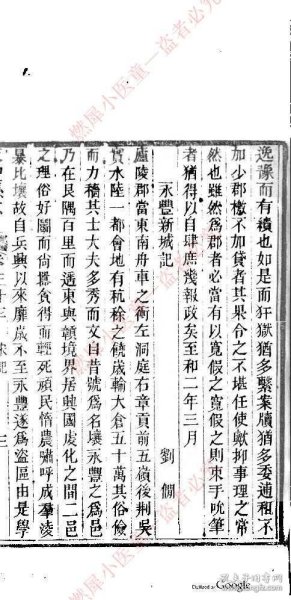 逸謙而有績也如是而犴獄猶多繫案牘猶多委通租不
加少郡檄不加貸者其果令之不堪任使歟抑事理之常
然也雖然爲郡者必當有以寬假之寬假之則束手吮筆
者猶得以自肆庶幾報政矣至和二年三月
永豐新城記 劉僩
廬陵郡當東南舟車之衝左洞庭右章貢前五嶺後荆吳
實水陸一都會地有秔稌之饒歲輸大倉五十萬其俗儉
而力穡其士大夫多秀而文自昔號爲名壤永豐之爲邑
乃在艮隅百里而遙東與贛境界居興國虔化之間二邑
之理俗好鬭而尙獵貪得而輕死頑民惰農嘯呼成羣淩
暴比壤故自兵興以來靡歲不至永豐遂爲盜區由是學
燃犀小医童—盗者必究
燃犀小医童—盗者必究
Digitized by Google